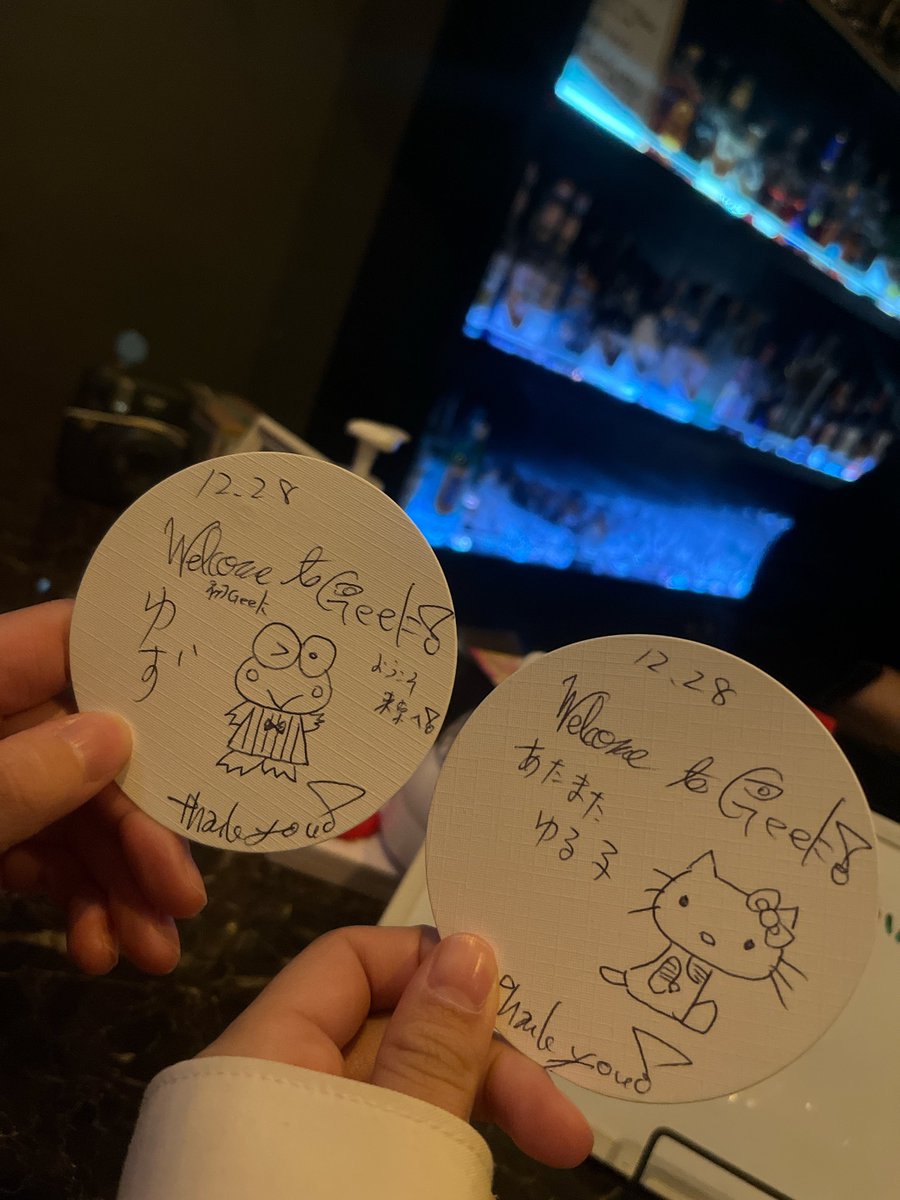 12.28
Welcome to Geek!
初Geek
ゆ
ず
ようこそ
未来へ!
thank you!
12.28
Welcome to Geek!
あたまた
ゆるる
thank you!